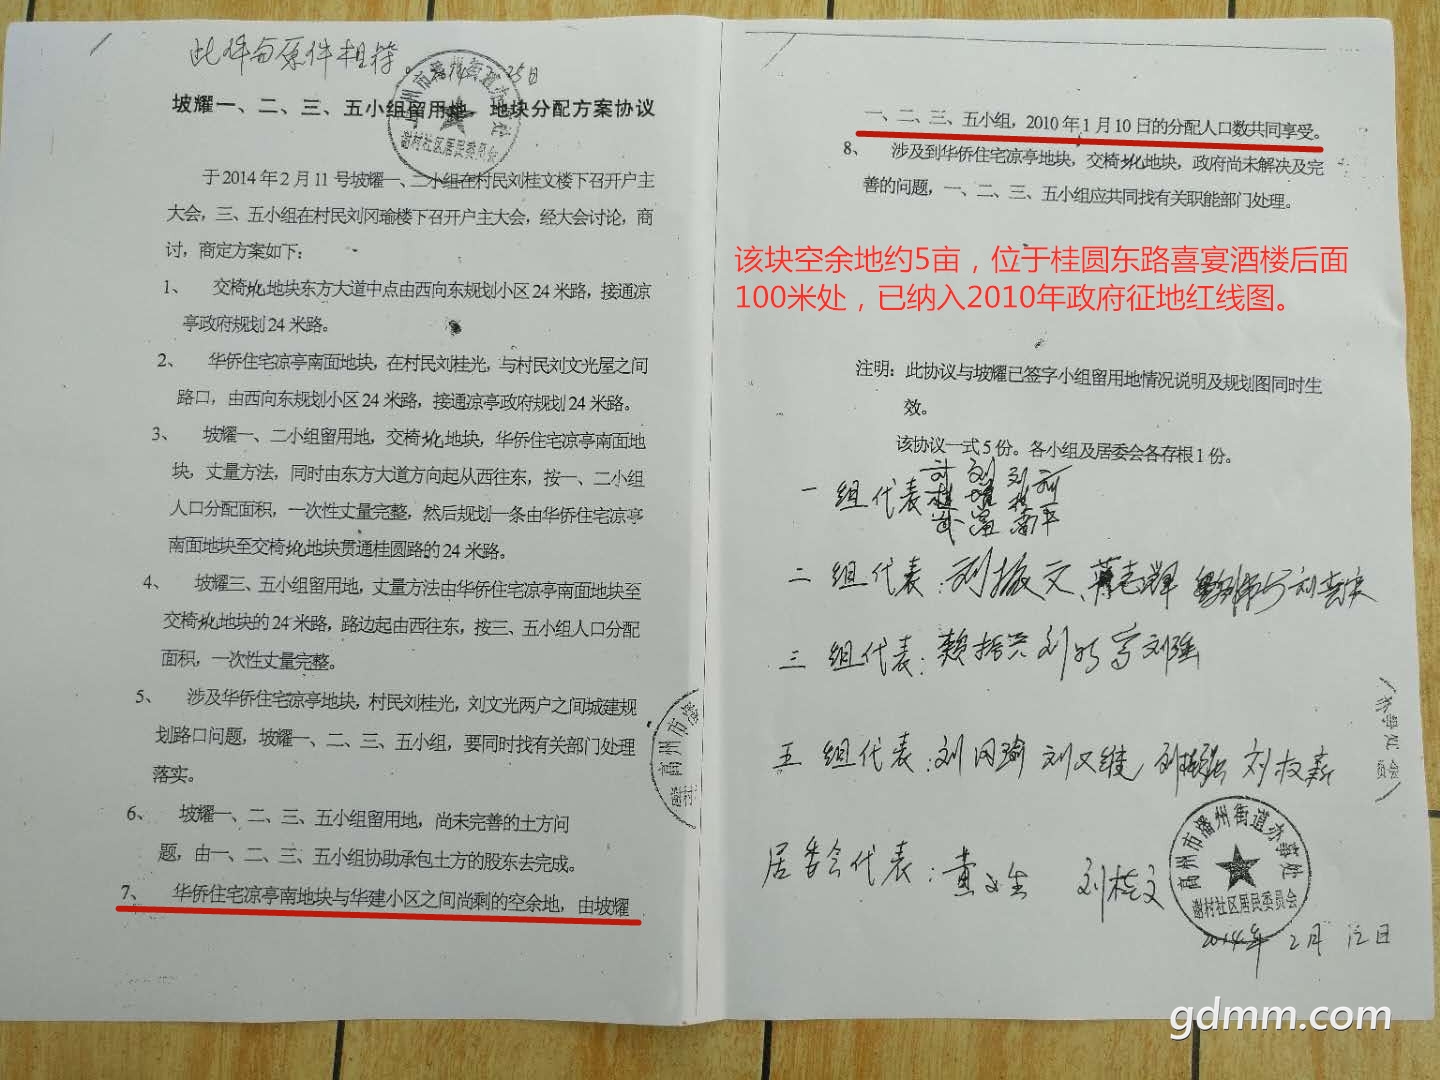 此件与原件相符
25日
坡耀一、二、三、五小组留用地 地块分配方案协议
于2014年2月11号坡耀一、二小组在村民刘桂文楼下召开户主
大会，三、五小组在村民刘冈瑜楼下召开户主大会，经大会讨论，商
讨，商定方案如下：
1、 交椅地块东方大道中点由西向东规划小区24米路，接通凉
亭政府规划24米路。
2、 华侨住宅凉亭南面地块，在村民刘桂光，与村民刘文光屋之间
路口，由西向东规划小区24米路，接通凉亭政府规划24米路。
3、 坡耀一、二小组留用地，交椅地块，华侨住宅凉亭南面地
块，丈量方法，同时由东方大道方向起从西往东，按一、二小组
人口分配面积，一次性丈量完整，然后规划一条由华侨住宅凉亭
南面地块至交椅地块贯通桂圆路的24米路。
4、 坡耀三、五小组留用地，丈量方法由华侨住宅凉亭南面地块至
交椅地块的24米路，路边起由西往东，按三、五小组人口分配
面积，一次性丈量完整。
5、 涉及华侨住宅凉亭地块，村民刘桂光，刘文光两户之间城建规
划路口问题，坡耀一、二、三、五小组，要同时找有关部门处理
落实。
6、 坡耀一、二、三、五小组留用地，尚未完善的土方问
题，由一、二、三、五小组协助承包土方的股东去完成。
7、 华侨住宅凉亭南地块与华建小区之间尚剩的空余地，由坡耀
一、二、三、五小组，2010年1月10日的分配人口数共同享受。
8、 涉及到华侨住宅凉亭地块，交椅地块，政府尚未解决及完
善的问题，一、二、三、五小组应共同找有关职能部门处理。
该块空余地约5亩，位于桂圆东路喜宴酒楼后面
100米处，已纳入2010年政府征地红线图。
注明：此协议与坡耀已签字小组留用地情况说明及规划图同时生
效。
该协议一式5份。各小组及居委会各存根1份。
一组代表
二组代表：刘振文、
三组代表：赖振兴
五组代表：刘冈瑜 刘文维
居委会代表：黄 刘桂文
高州市潘州街道办事处
谢村社区居民委员会
2014年2月12日
gdmm.com